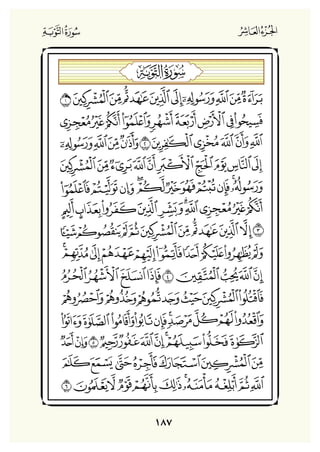 الجُزْءُ العَاشِرُ
سُورَةُ التَّوْبَةِ
سُورَةُ التَّوْبَةِ
بَرَآءَةٌ مِّنَ ٱللَّهِ وَرَسُولِهِۦٓ إِلَى ٱلَّذِينَ عَٰهَدتُّم مِّنَ ٱلْمُشْرِكِينَ ١
فَسِيحُوا۟ فِى ٱلْأَرْضِ أَرْبَعَةَ أَشْهُرٍ وَٱعْلَمُوٓا۟ أَنَّكُمْ غَيْرُ مُعْجِزِى
ٱللَّهِ وَأَنَّ ٱللَّهَ مُخْزِى ٱلْكَٰفِرِينَ ٢ وَأَذَٰنٌ مِّنَ ٱللَّهِ وَرَسُولِهِۦٓ
إِلَى ٱلنَّاسِ يَوْمَ ٱلْحَجِّ ٱلْأَكْبَرِ أَنَّ ٱللَّهَ بَرِىٓءٌ مِّنَ ٱلْمُشْرِكِينَ
وَرَسُولُهُۥ فَإِن تُبْتُمْ فَهُوَ خَيْرٌ لَّكُمْ وَإِن تَوَلَّيْتُمْ فَٱعْلَمُوٓا۟
أَنَّكُمْ غَيْرُ مُعْجِزِى ٱللَّهِ وَبَشِّرِ ٱلَّذِينَ كَفَرُوا۟ بِعَذَابٍ أَلِيمٍ
٣ إِلَّا ٱلَّذِينَ عَٰهَدتُّم مِّنَ ٱلْمُشْرِكِينَ ثُمَّ لَمْ يَنقُصُوكُمْ شَيْـًٔا
وَلَمْ يُظَٰهِرُوا۟ عَلَيْكُمْ أَحَدًا فَأَتِمُّوٓا۟ إِلَيْهِمْ عَهْدَهُمْ إِلَىٰ مُدَّتِهِمْ
إِنَّ ٱللَّهَ يُحِبُّ ٱلْمُتَّقِينَ ٤ فَإِذَا ٱنسَلَخَ ٱلْأَشْهُرُ ٱلْحُرُمُ
فَٱقْتُلُوا۟ ٱلْمُشْرِكِينَ حَيْثُ وَجَدتُّمُوهُمْ وَخُذُوهُمْ وَٱحْصُرُوهُمْ
وَٱقْعُدُوا۟ لَهُمْ كُلَّ مَرْصَدٍ فَإِن تَابُوا۟ وَأَقَامُوا۟ ٱلصَّلَوٰةَ وَءَاتَوُا۟
ٱلزَّكَوٰةَ فَخَلُّوا۟ سَبِيلَهُمْ إِنَّ ٱللَّهَ غَفُورٌ رَّحِيمٌ ٥ وَإِنْ أَحَدٌ
مِّنَ ٱلْمُشْرِكِينَ ٱسْتَجَارَكَ فَأَجِرْهُ حَتَّىٰ يَسْمَعَ كَلَٰمَ
ٱللَّهِ ثُمَّ أَبْلِغْهُ مَأْمَنَهُۥ ذَٰلِكَ بِأَنَّهُمْ قَوْمٌ لَّا يَعْلَمُونَ ٦
١٨٧